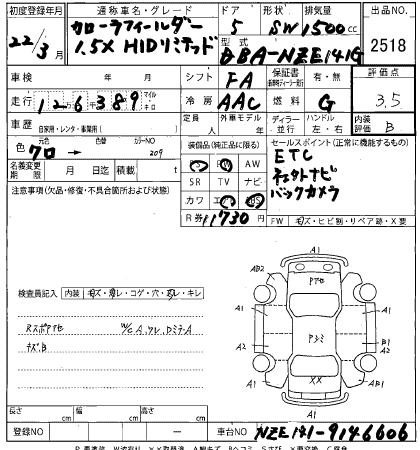 初度登録年月 通称車名・グレード ドア 形状 排気量 出品NO.
22/3月 カローラフィールダー 1.5X HIDリミテッド 5 SW 1500cc 2518
型式 DBA-NZE141G
車検 年 月 シフト FA 保証書 有・無 評価点
走行 12万6千389 マイル キロ 冷房 AAC 燃料 G 3.5
車歴 自家用・レンタ・事業用( ) 定員 人 外車モデル 年 ディーラー・並行 ハンドル 左・右 内装評価 B
色 元色 クロ 色替 カラーNO 209 装備品(純正品に限る) セールスポイント(正常に機能するもの)
名義変更期限 月 日 積載 t PS PW AW ETC
注意事項(欠品・修復・不具合箇所および状態) SR TV ナビ
カワ エアB ABS バックカメラ
R券 11730円 FW キズ・ヒビ割・リペア跡・X要
A1
AB2 A1
検査員記入 内装 キズ・汚レ・コゲ・穴・スレ・キレ
Rスポアセ W/C A,ワレ,DミラーA
キズB
A1 A1
A2 B1
A2 A1
A1 XX AB1
A1
長さ cm 幅 cm 高さ cm
登録NO ― 車台NO NZE141-9146606